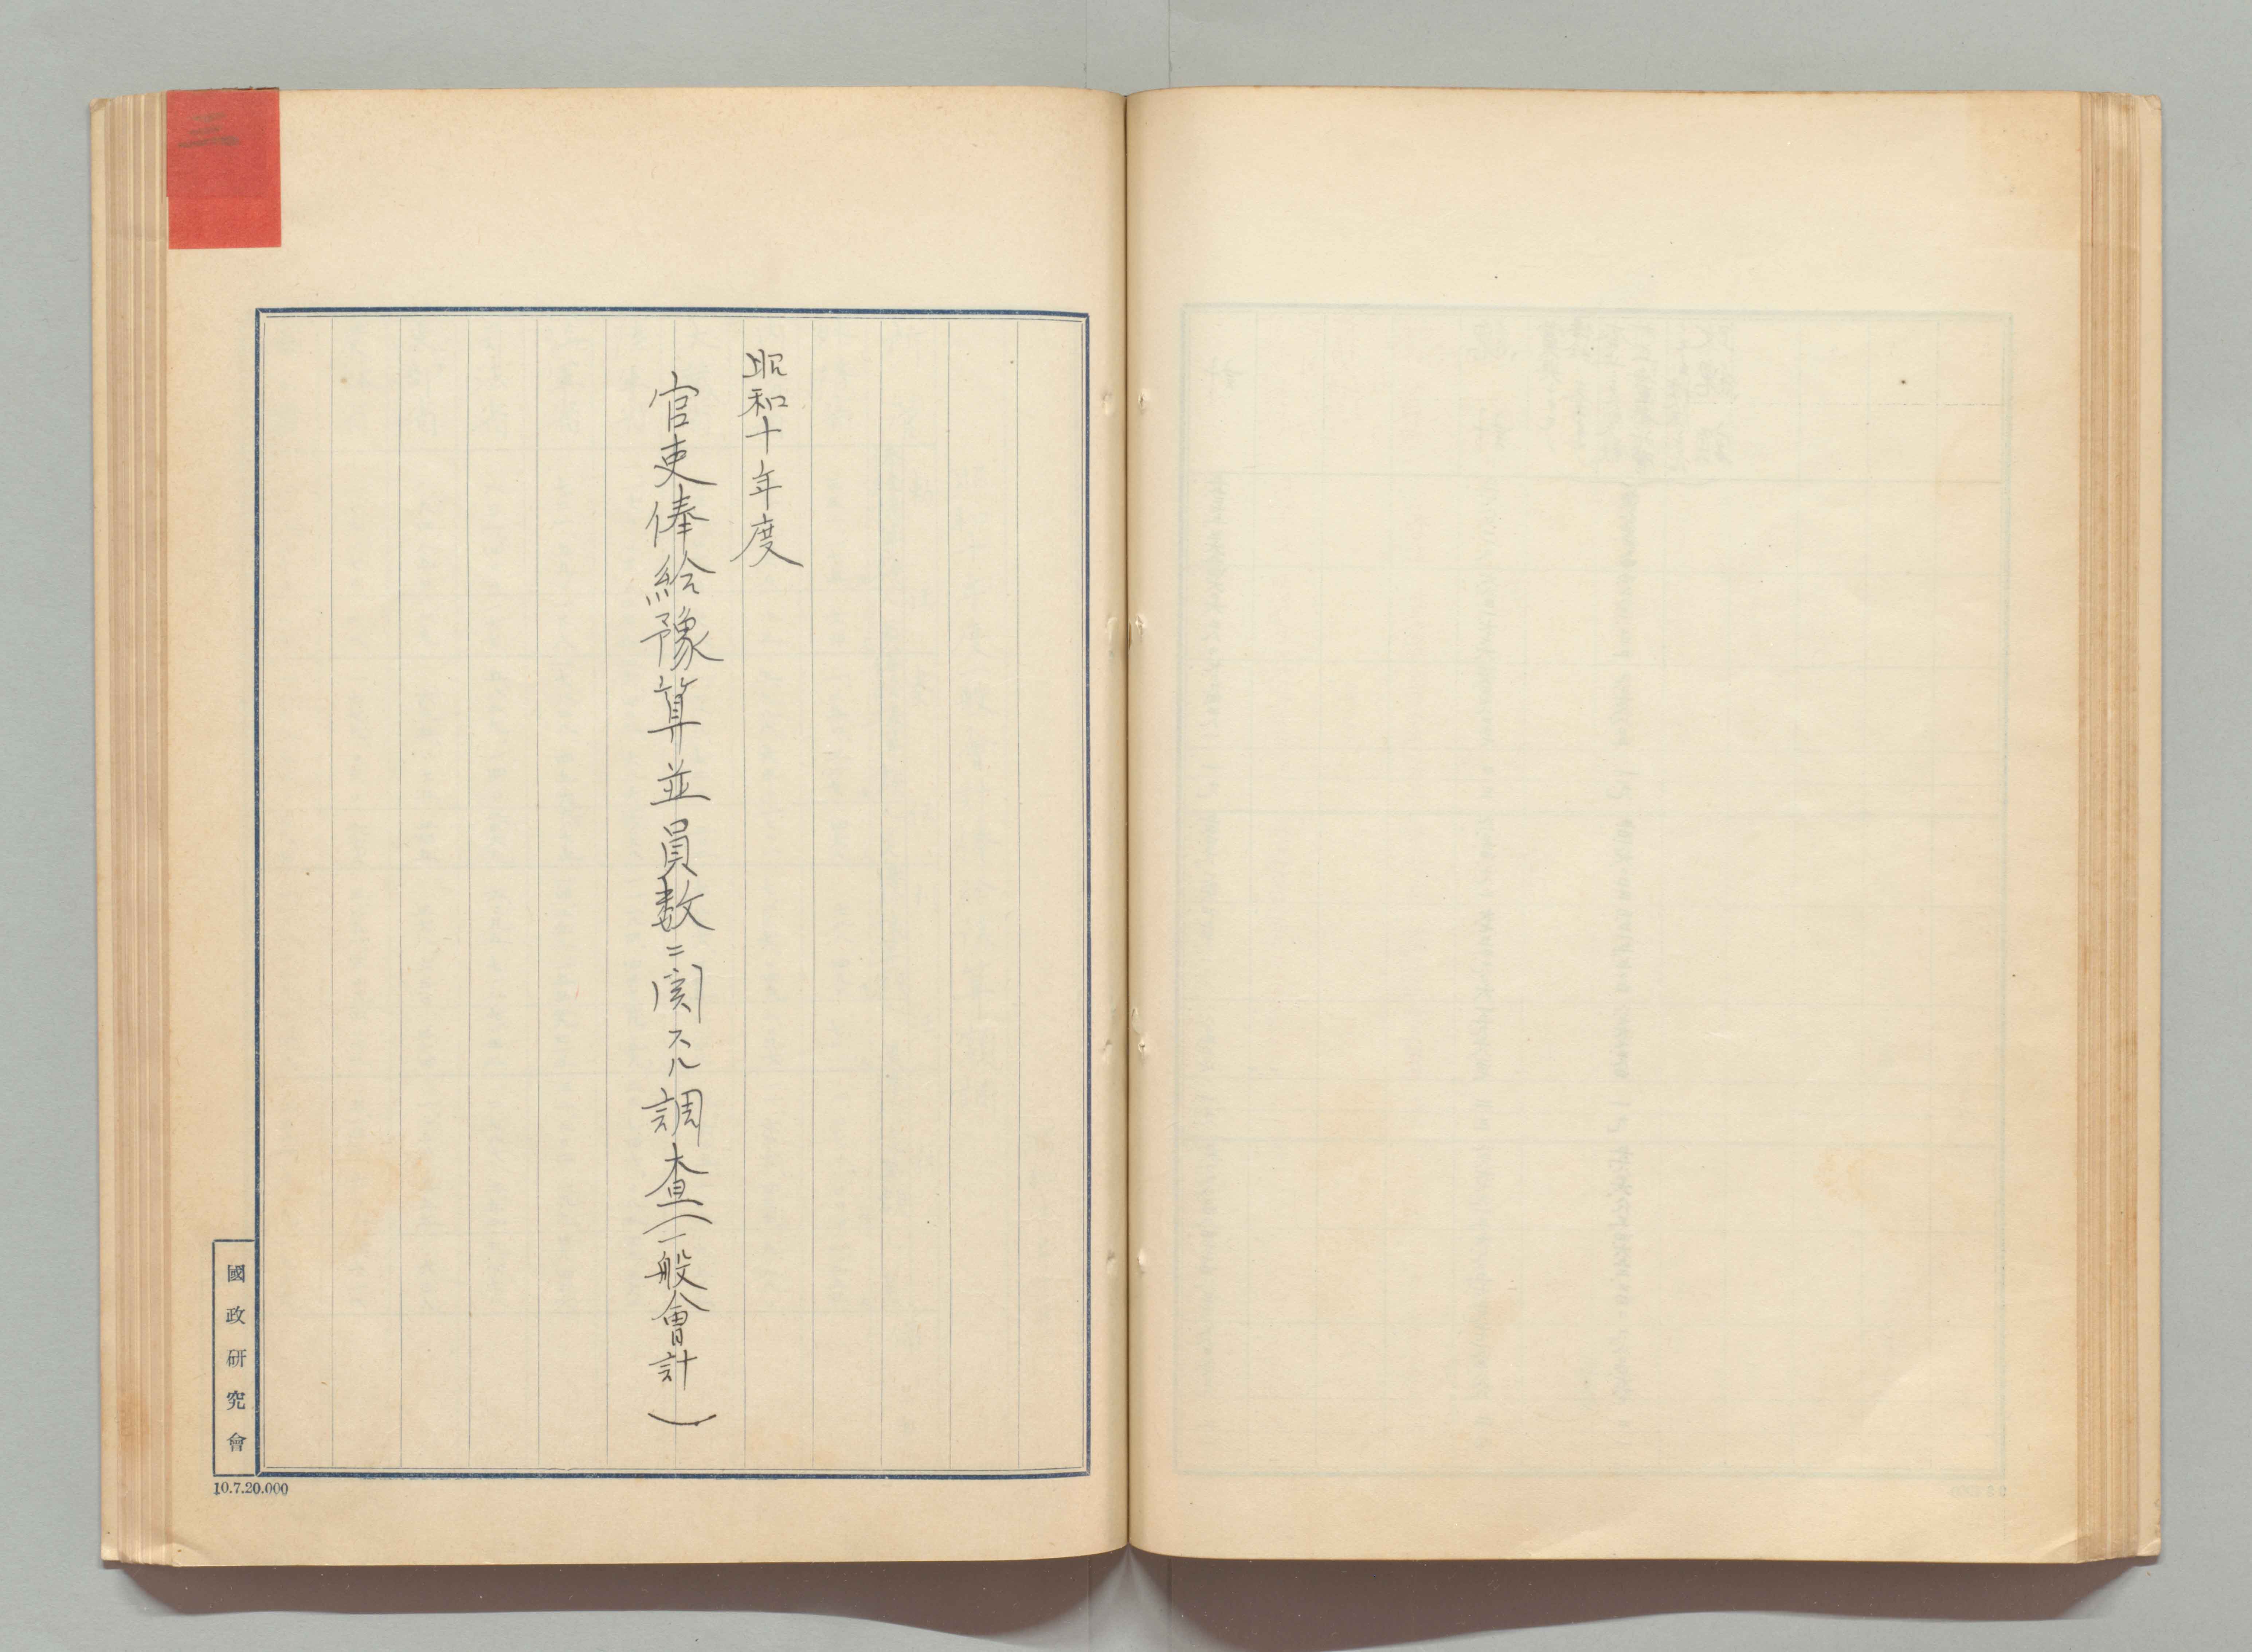 昭和十年度
官吏俸給豫算並員数ニ関スル調査（一般會計）
三
國政研究會
10.7.20.000